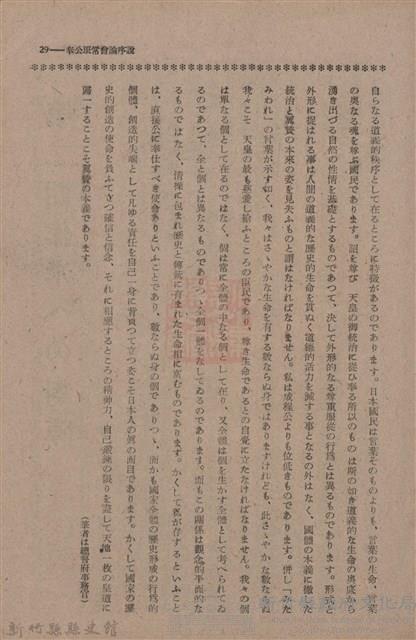 29——奉公班常會論序說
自らなる道義的秩序として在るところに特徴があるのであります。日本國民は言葉そのものよりも、言葉の生命、言葉
の奥なる魂を尊ぶ國民であります。詔を尊び　天皇の御統治に從ひ奉る所以のものは斯の如き道義的な生命の奥底から
湧き出づる自然の性情を基礎とするものであつて、決して外形的なる尊重服從の行爲とは異るものであります。形式と
外形に捉はれる事は人間の道義的な歴史的生命を貫ぬく道德的活力を減する事となるの外はなく、國體の本義に徹した
統治と翼贊の本來の姿を見失ふものと謂はなければなりません。私は戒程公よりも位低きものであります。併し「みた
みわれ」の言葉が示す如く、我々はさゝやかな生命を有する數ならぬ身ではありますけれども、此さゝやかな數ならぬ
我々こそ　天皇の最も慈愛し給ふところの臣民であり、尊き生命であるとの自覺に立たなければなりません。我々の個
は單なる個として在るのではなく、個は常に全體の中なる個として在り、又全體は個を生かす全體として考へられてゐ
るのであつて、全と個とは異なるものでありつゝ全個一體をなしてゐるのであります。而もこの關係は觀念的平面的な
るものではなく、情操に包まれ歴史と傳統に育まれた生命相に富むものであります。かくして私が存するといふこと
は、直接公に奉仕すべき使命ありといふことであり、數ならぬ身の個でありつゝ、而かも國家全體の歴史形成の行爲的
個體、創造的尖端として凡ゆる責任を自己一身に背負つて立つ姿こそ日本人の眞の面目であります。かくして國家の歴
史的創造の使命を負ふて立つ確信と信念、それに相應するところの精神力、自己鍛錬の限りを盡して天地一枚の皇道に
歸一することこそ翼贊の本義であります。
（筆者は總督府事務官）
新竹縣縣史館